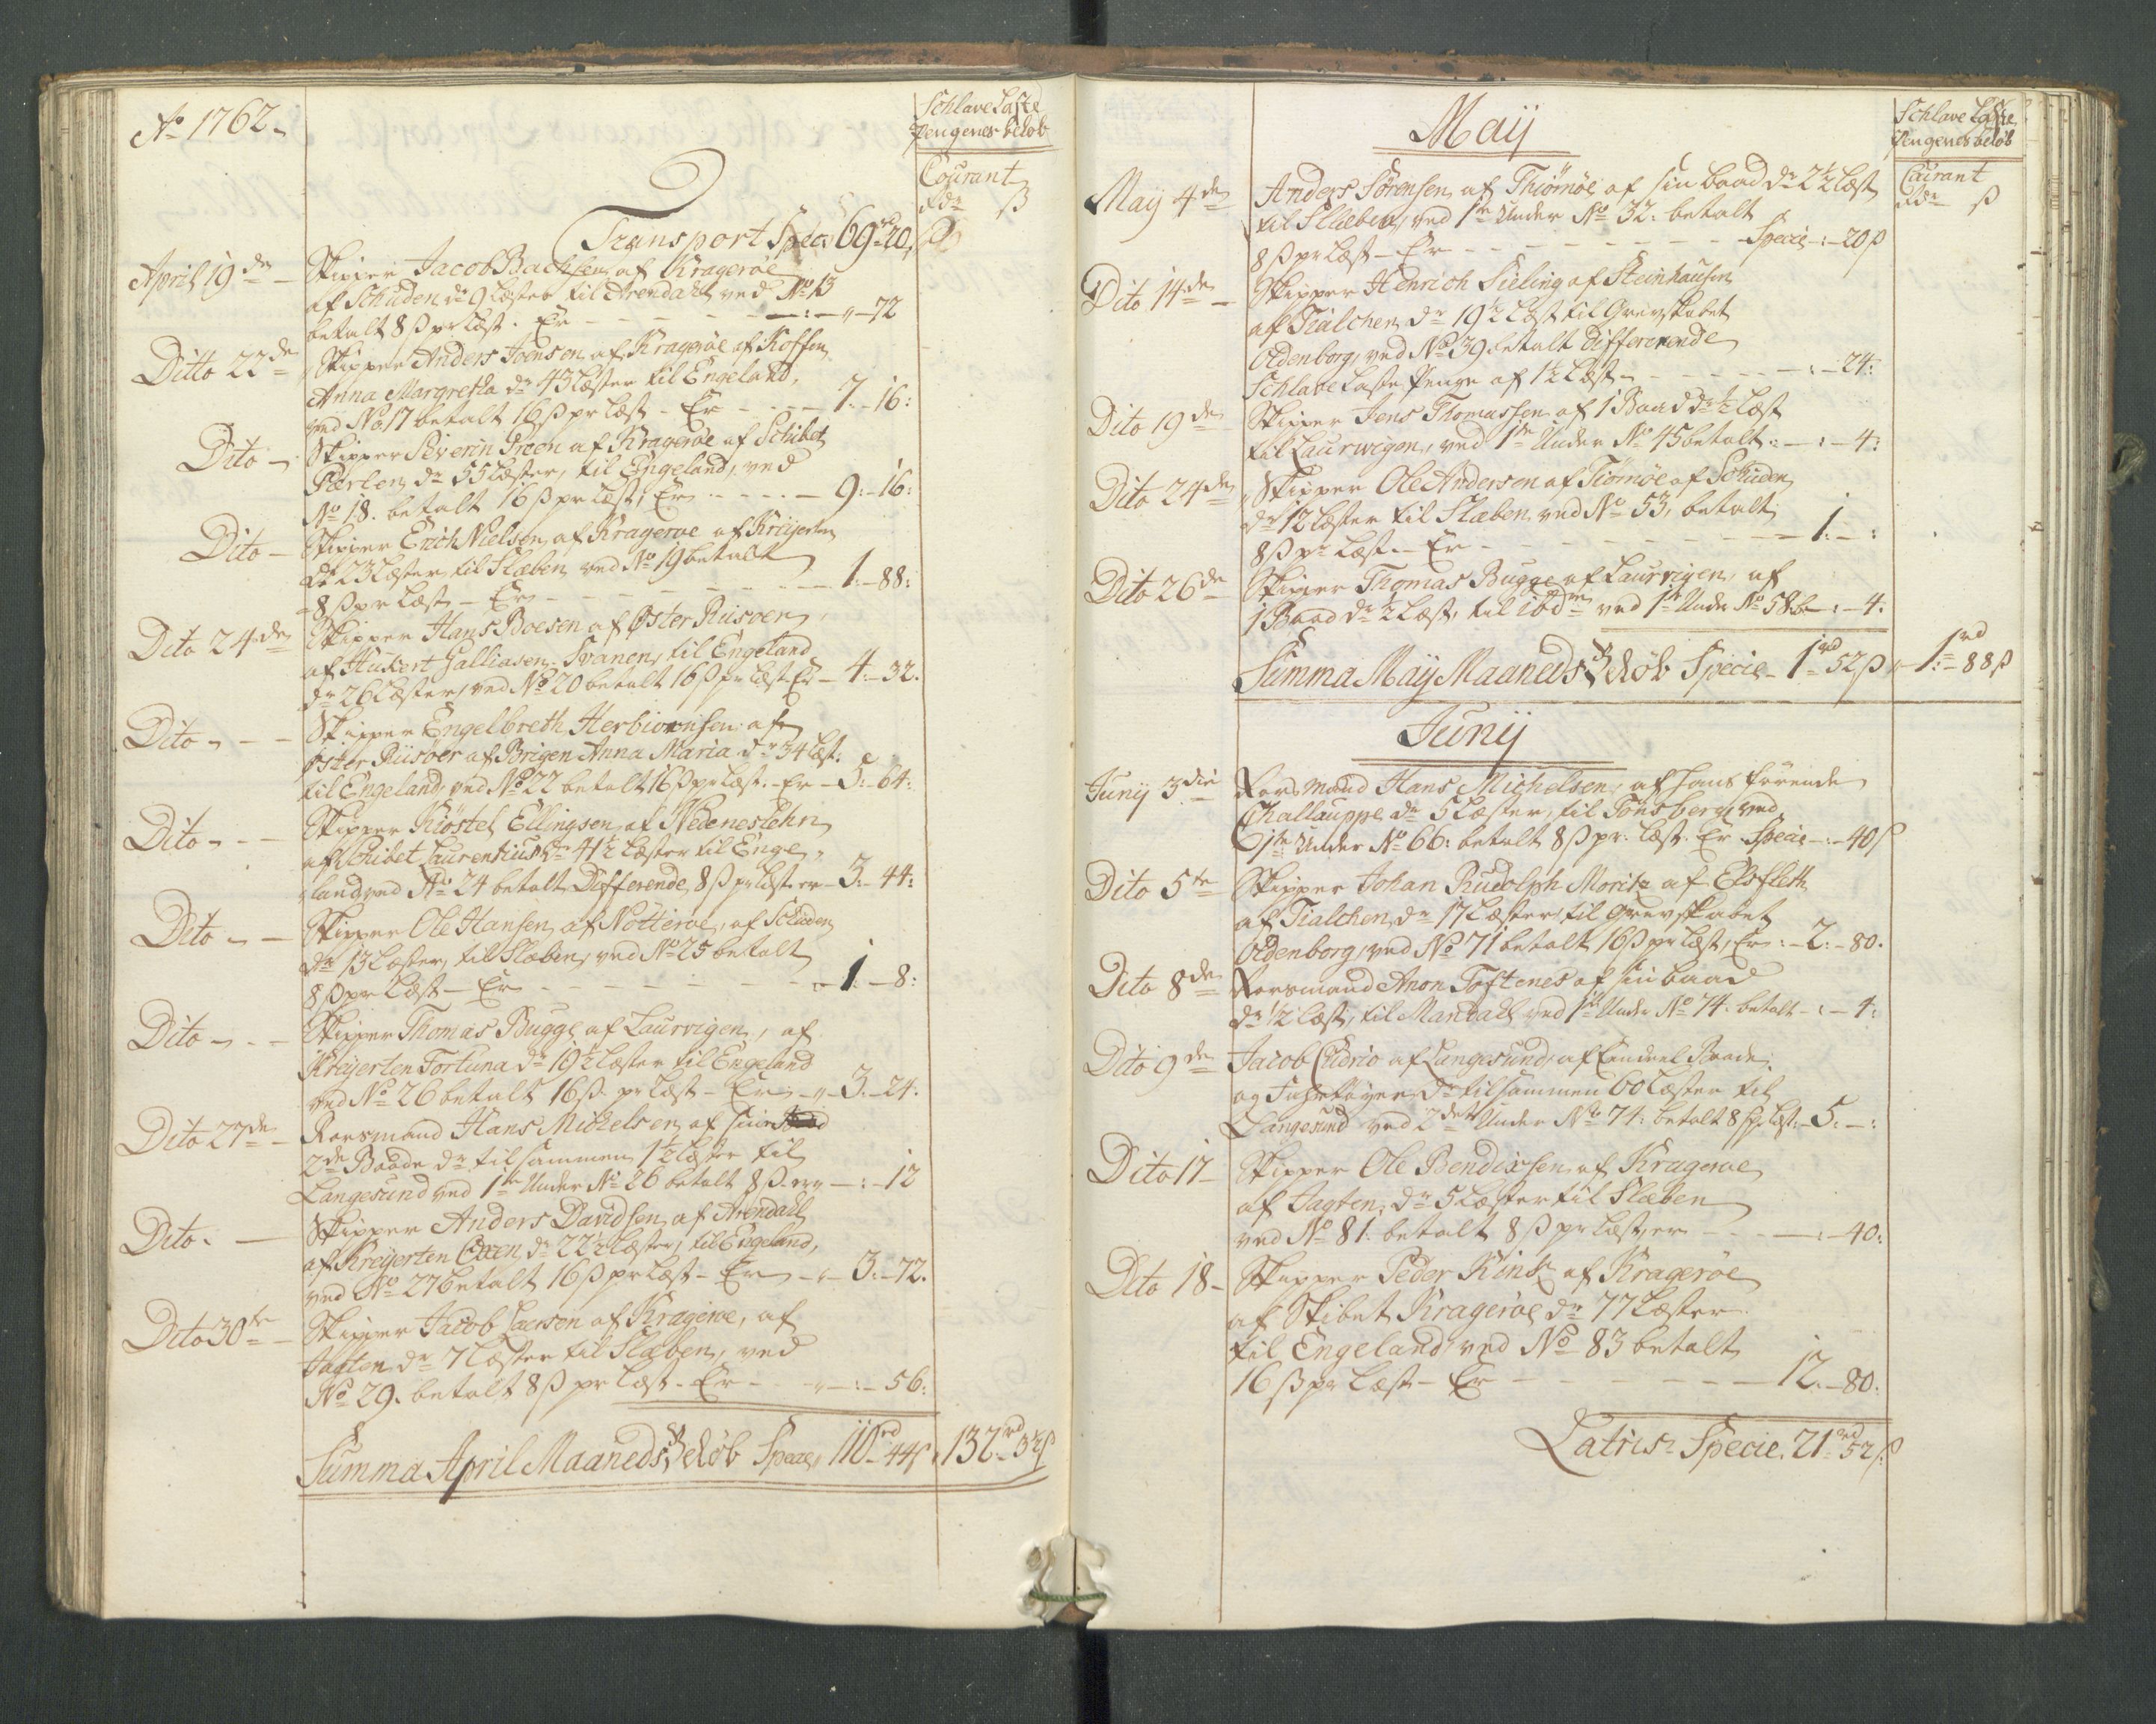 Ao 1762.
Schlave Laste
Pengenes beløb
Courant
Rdr ß
Transport Spec 69rd 20ß
April 19de Skipper Jacob Bachsen af Kragerøe
af Schuden dr 9 Læster til Arendahl ved No 13
betalt 8 ß pr Læst. Er - - - „ - 72
Ditto 22de Skipper Anders Joensen af Kragerøe af Koffen
Anna Margretha dr 43 Læster til Engeland,
ved No 17 betalt 16 ß pr Læst - Er - - 7 - 16:
Dito - Skipper Severin Green af Kragerøe af Schibet
Pærlen dr 55 Læster, til Engeland, ved
No 18. betalt 16 ß pr Læst, Er - - - 9: - 16:
Dito - Skipper Erich Nielsen af Kragerøe af Kreyerten
dr 23 Læster til Slæben ved No 19 betalt
8 ß pr Læst - Er - - - 1. - 88:
Dito 24de Skipper Hans Boesen af Øster Riisøer,
af Hukert Galliasen Svanen, til Engeland
dr 26 Læster, ved No 20 betalt 16 ß pr Læst Er - 4 - 32.
Dito - - Skipper Engelbreth Herbiørnsen af
Øster Riisøer af Brigen Anna Maria dr 34 Læst:
til Engeland, ved No 22 betalt 16 ß pr Læst. - Er - 5: - 64:
Dito - - Skipper Kiøstel Ellingsen af Nedenes Lehn
af Schibet Laurentius dr 41½ Læster til Enge„
„land ved No 24 betalt Differende 8 ß pr Læst er - 3: - 44:
Dito - - Skipper Ole Hansen af Nøtterøe, af Schuden
dr 13 Læster, til Slæben, ved No 25 betalt
8 ß pr Læst - Er - - - 1 - 8:
Dito - - Skipper Thomas Bugge af Laurvigen, af
Kreyerten Fortuna dr 19½ Læster til Engeland
ved No 26 betalt 16 ß pr Læst - Er - „ - 3. - 24.
Dito 27de - Rorsmand Hans Michelsen af
2de Baade dr tilsammen 1½ Læster til
Langesund ved 1te Under No 26 betalt 8 ß er - : - 12
Dito. - Skipper Anders Davidsen af Arendahl
af Kreyerten dr 22½ Læster, til Engeland,
ved No 27 betalt 16 ß pr Læst - Er - „ - 3: - 72.
Dito 30te - Skipper Jacob Larsen af Kragerøe, af
Jagten dr 7 Læster til Slæben, ved
No 29. betalt 8 ß pr Læst - Er - „ - : - 56:
Summa April Maaneds Beløb Specie 110rd 44ß 132rd 32ß
Schlave Laste
Pengenes beløb
Courant
Rdr ß
Maij
Maij 4de Anders Sørensen af Thiømøe af sin baad dr 2½ Læst
til Slæben, ved 1te Under No 32. betalt
8 ß pr Læst - Er - - - Specie - : - 20 ß
Dito 14de - Skipper Henrich Sieling af Steinhausen
af Tialchen dr 19½ Læst til Grevskabet
Oldenborg, ved No 39 betalt Differerende
Schlave Laste Penge af 1½ Læst - - - : - 24:
Dito 19de Skipper Jens Thomassen af 1 Baad dr ½ Læst
til Laurwigen, ved 1te Under No 45 betalt: - : - 4:
Dito 24de Skipper Ole Andersen af Tiømøe af Schuden
dr 12 Læster til Slæben ved No 53, betalt
8 ß pr Læst. - Er - - - 1. - :
Dito 26de Skipper Thomas Bugge af Laurvigen, af
1 Baad dr ½ Læst, til ibdm ved 1te Under No 58 be : - 4.
Summa Maij Maaneds Beløb Specie - 1rd 52ß „ 1rd 88ß
Junij
Junij 3die Rorsmand Hans Michelsen, af hans førende
Challauppe dr 5 Læster, til Tønsberg ved
1te Under No 66: betalt 8 ß pr. Læst. Er Specie - : - 40 ß
Dito 5te Skipper Johan Rudolph Moritz af Elsfleth
af Tialchen dr 17 Læster til Grevskabet
Oldenborg, ved No 71 betalt 16 ß pr Læst, Er: - 2: - 80.
Dito 8de Rorsmand Anon Toftenes af sin baad
dr ½ Læst, til Mandahl ved 1te Under No 74. betalt - : - 4:
Dito 9de Jacob Cudrio af Langesund, af Baade
og Fuhrtøyer dr tilsammen 60 Læster til
Langesund ved 2det Under No 74: betalt 8 ß pr Læst: - 5: - :
Dito 17 - Skipper Ole Bendixsen af Kragerøe
af Jagten, dr 5 Læster til Slæben
ved No 81. betalt 8 ß pr Læst, er - - - : - 40:
Dito 18 - Skipper Peder Kink af Kragerøe
af Skibet Kragerøe dr 77 Læster
til Engeland ved No 83 betalt
16 ß pr Læst - Er - - - 12. - 80.
Latris Specie. 21rd 52ß